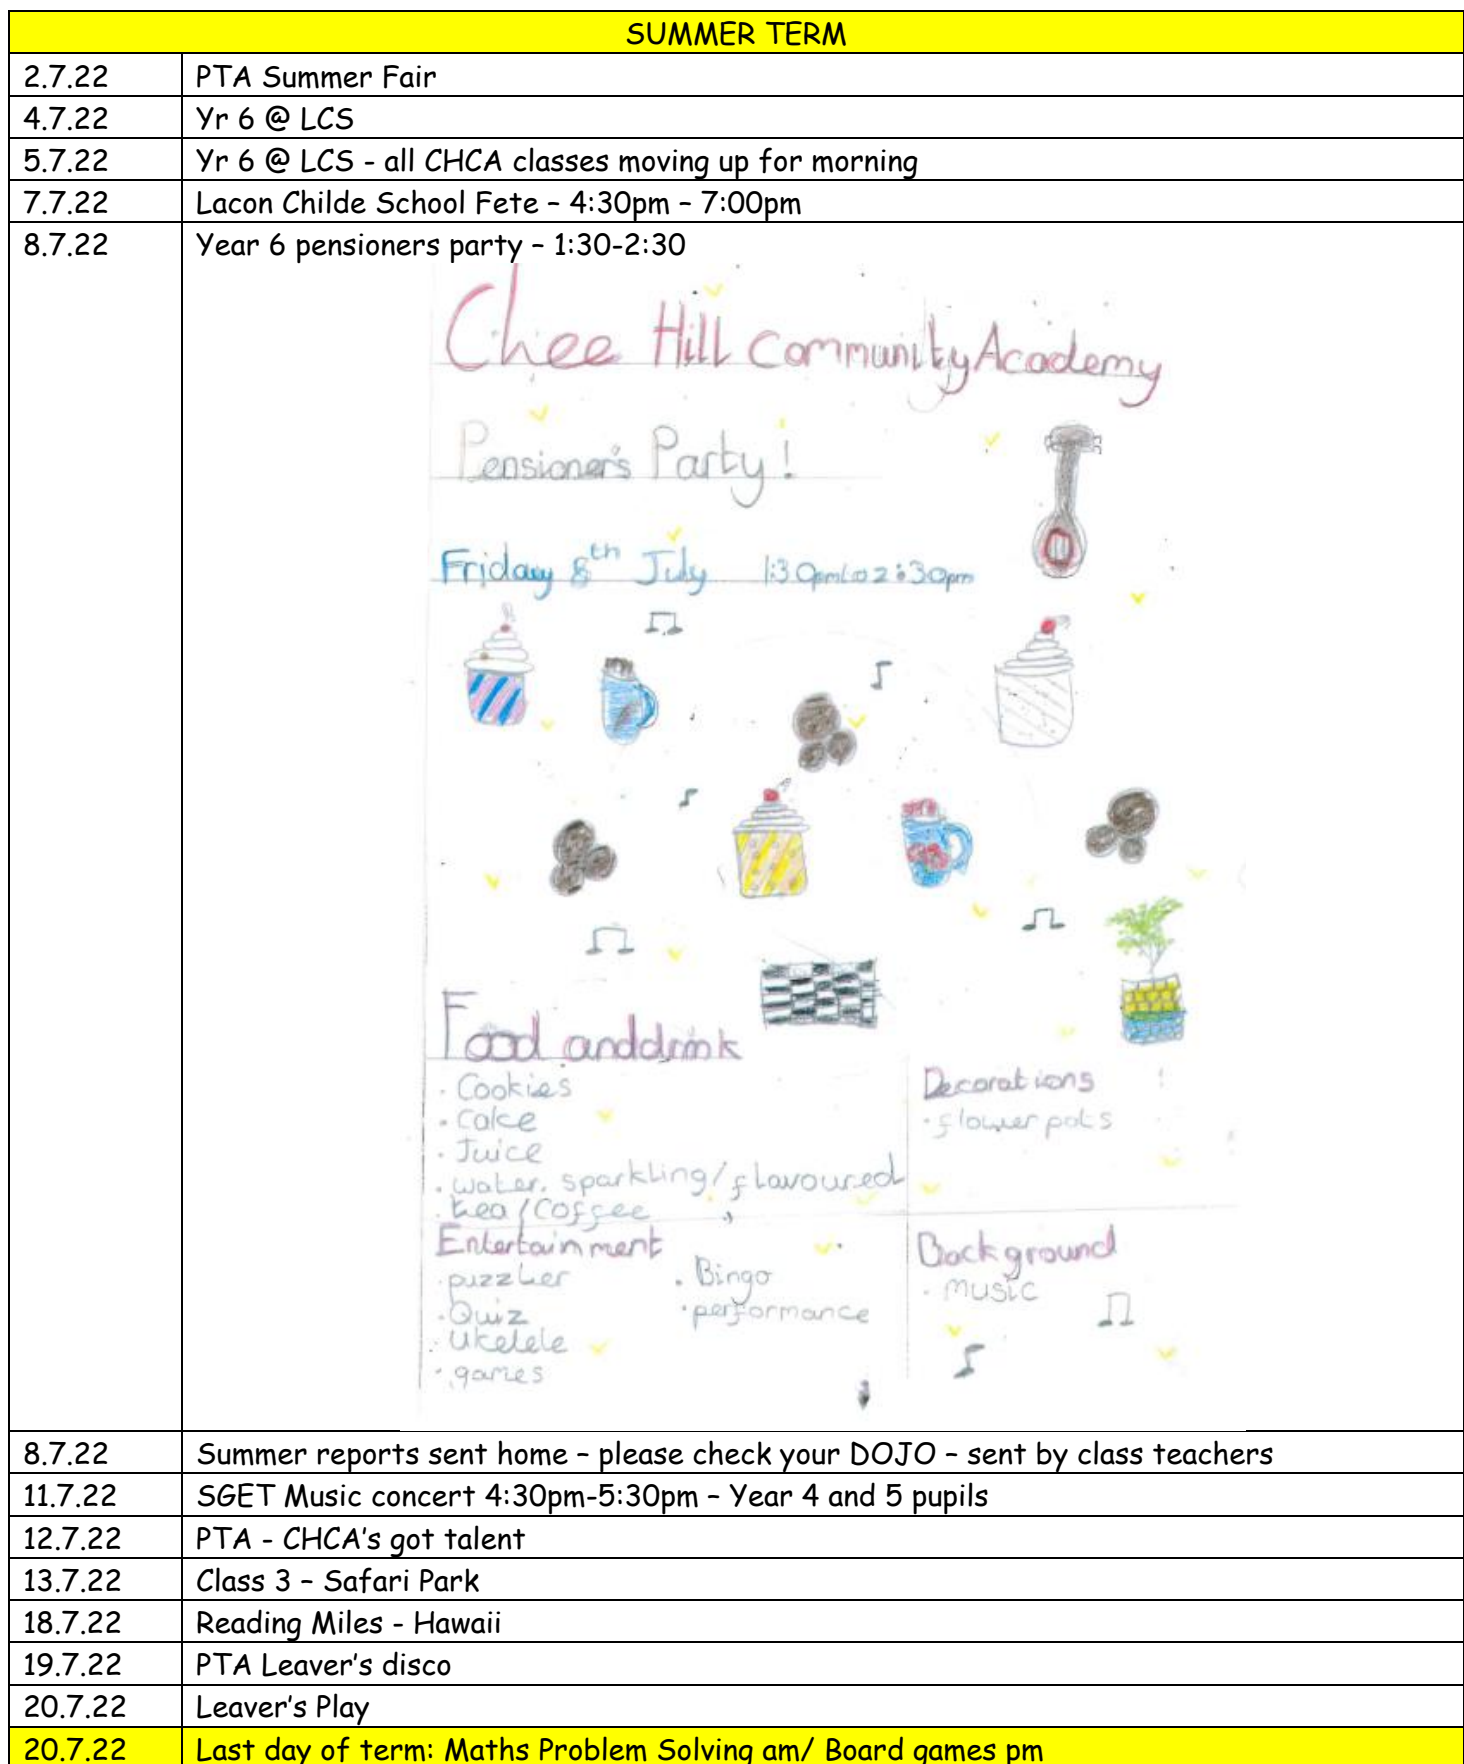 SUMMER TERM
2.7.22 PTA Summer Fair
4.7.22 Yr 6 @ LCS
5.7.22 Yr 6 @ LCS - all CHCA classes moving up for morning
7.7.22 Lacon Childe School Fete – 4:30pm – 7:00pm
8.7.22 Year 6 pensioners party – 1:30-2:30
Chee Hill Community Academy
Pensioner's Party!
Friday 8th July 1:30pm to 2:30pm
Food and drink
· Cookies
· Cake
· Juice
· water. sparkling/flavoured
· tea/Coffee
Decorations
· flower pots
Entertainment
· puzzler
· Quiz
· Ukelele
· games
· Bingo
· performance
Background
· music
8.7.22 Summer reports sent home – please check your DOJO – sent by class teachers
11.7.22 SGET Music concert 4:30pm-5:30pm – Year 4 and 5 pupils
12.7.22 PTA - CHCA's got talent
13.7.22 Class 3 – Safari Park
18.7.22 Reading Miles - Hawaii
19.7.22 PTA Leaver's disco
20.7.22 Leaver's Play
20.7.22 Last day of term: Maths Problem Solving am/ Board games pm